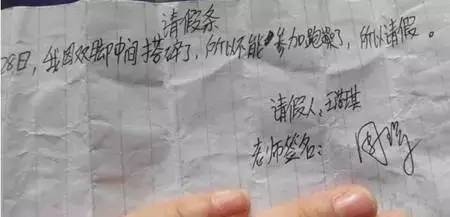 请假条
28日，我因双脚中间搭碎了，所以不能参加跑操了，所以请假。
请假人：王
老师签名：